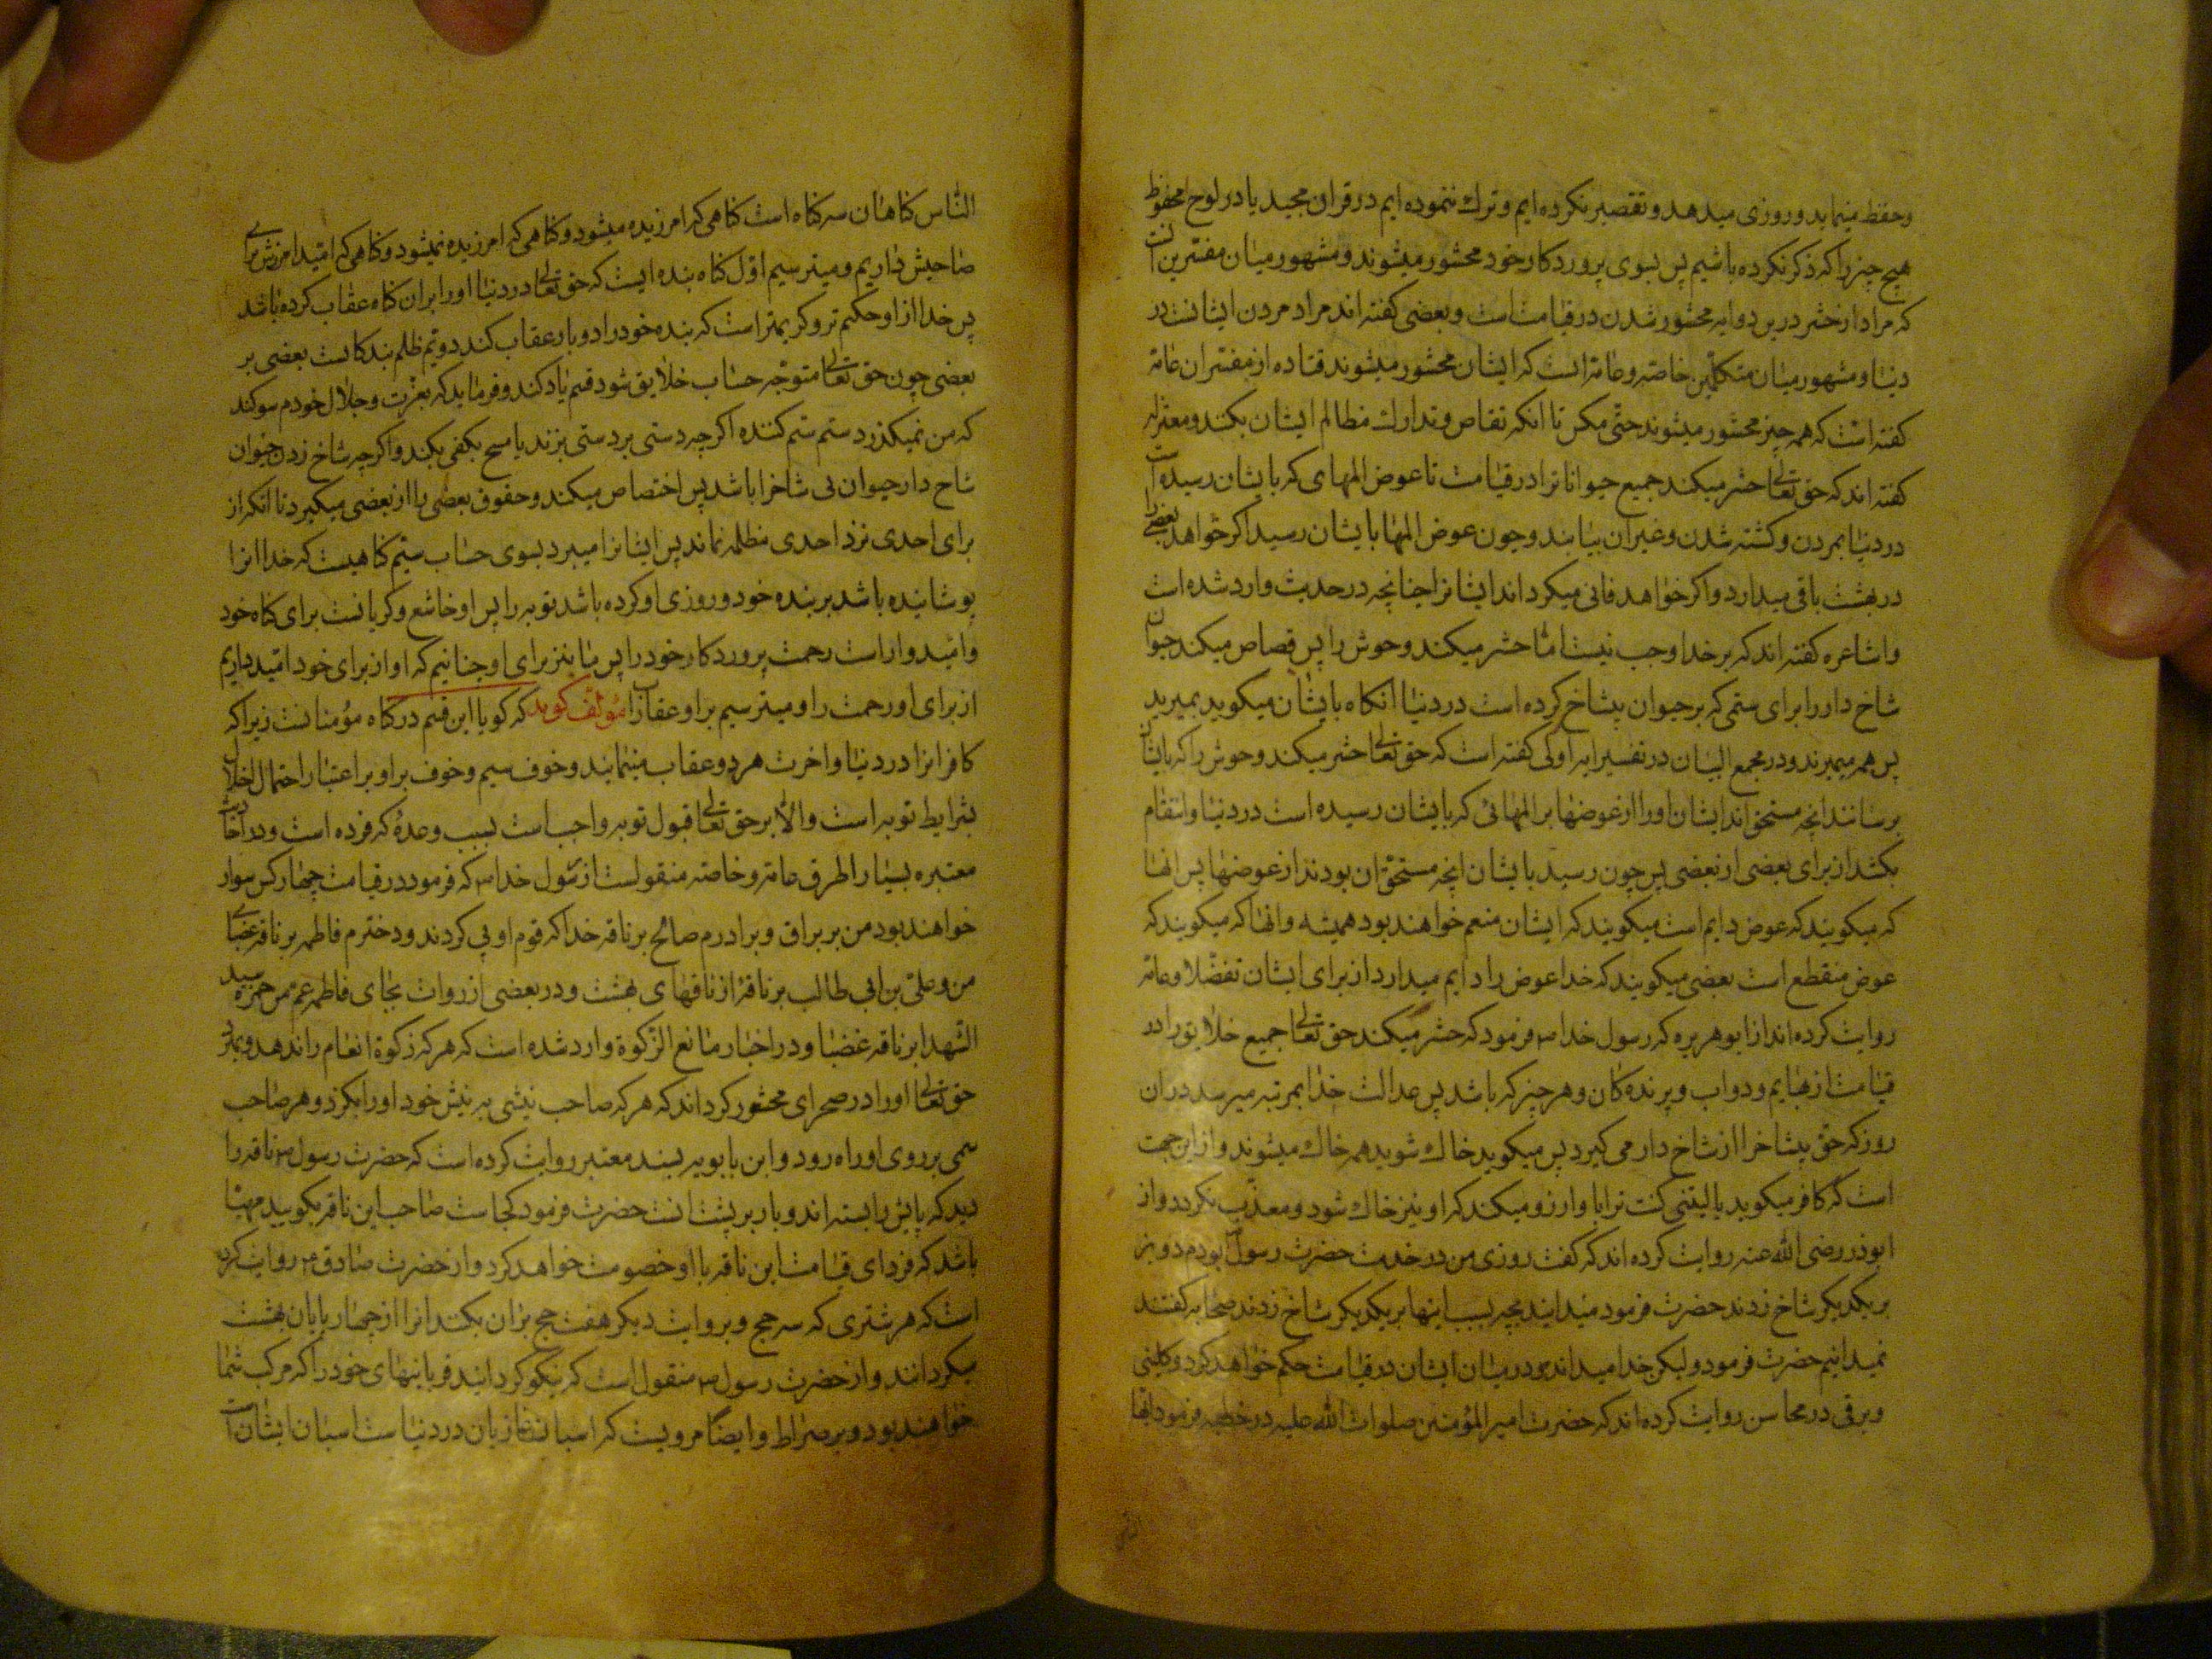 وحفظ مینماید و روزی میدهد و تقصیر نکرده ایم و ترك ننموده ایم در قران مجید یا در لوح محفوظ
هیچ چیز را که ذکر نکرده باشیم پس بسوی پروردکار خود محشور میشوند و مشهور میان مفسرین انست
که مراد از حشر درین دو ایه محشور شدن در قیامت است و بعضی کفته اند مراد مردن ایشانست در
دنیا و مشهور میان متکلمین خاصه و عامه است که ایشان محشور میشوند قتاده از مفسران عامه
کفته است که همه چیز محشور میشوند حتی مکس تا انکه تقاص و تدارك مظالم ایشان بکند و معتزله
کفته اند که حق تعالی حشر میکند جمیع حیوانانرا در قیامت تا عوض المهای که بایشان رسیده است
در دنیا بمردن و کشته شدن و غیر ان بیابند و چون عوض المها بایشان رسید اکر خواهد بعضی را
در بهشت باقی میدارد و اکر خواهد فانی میکرداند ایشانرا چنانچه در حدیث وارد شده است
و اشاعره کفته اند که بر خدا وجب نیست امّا حشر میکند وحوش را پس قصاص میکند حیوان
شاخ دار را برای ستمی که بر حیوان بیشاخ کرده است در دنیا انکاه بایشان میکوید بمیرید
پس همه میمیرند و در مجمع البیان در تفسیر ایه اولی کفته است که حق تعالی حشر میکند وحوش را که بایشان
برسانند انچه مستحق اند ایشان او را از عوضها بر المهائی که بایشان رسیده است در دنیا و انتقام
بکشد از برای بعضی از بعضی پس چون رسید بایشان انچه مستحق ان بودند از عوضها پس انها
که میکویند که عوض دایم است میکویند که ایشان منعم خواهند بود همیشه و انها که میکویند که
عوض منقطع است بعضی میکویند که خدا عوض را دایم میدارد از برای ایشان تفضّلا و عامه
روایت کرده اند از ابو هریره که رسول خدا ص فرمود که حشر میکند حق تعالی جمیع خلایق را در
قیامت از بهایم و دواب و پرنده کان و هر چیز که باشد پس عدالت خدا بمرتبه میرسد در ان
روز که حق بیشاخ را از شاخ دار می کیرد پس میکوید خاك شوید همه خاك میشوند و از این جهت
است که کافر میکوید یا لیتنی کنت ترابا و ارزو میکند که او نیز خاك شود و معذّب نکردد و از
ابوذر رضی الله عنه روایت کرده اند که کفت روزی من در خدمت حضرت رسول ص بودم دو بز
بریکدیکر شاخ زدند حضرت فرمود میدانید بچه سبب اینها بریکدیکر شاخ زدند صحابه کفتند
نمیدانیم حضرت فرمود ولیکن خدا میداند و در میان ایشان در قیامت حکم خواهد کرد و کلینی
و برقی در محاسن روایت کرده اند که حضرت امیر المؤمنین صلوات الله علیه در خطبه فرمود ایها
الناس کناهان سه کناه است کناهی که امرزیده میشود و کناهی که امرزیده نمیشود و کناهی که امید امرزش برای
صاحبش داریم و میترسیم اول کناه بنده ایست که حق تعالی در دنیا او را بر ان کناه عقاب کرده باشد
پس خدا از او حکیم تر و کریمتر است که بنده خود را دو بار عقاب کند دویّم ظلم بندکانست بعضی بر
بعضی چون حق تعالی متوجّه حساب خلایق شود قسم یاد کند و فرماید که بعزّت و جلال خودم سوکند
که من نمیکذرد ستم ستم کننده اکر چه دستی بر دستی بزند یا مسح بکفی بکند و اکر چه شاخ زدن حیوان
شاخ دار حیوان بی شاخرا باشد پس اختصاص میکند و حقوق بعضی را از بعضی میکیرد تا انکه از
برای احدی نزد احدی مظلمه نماند پس ایشانرا میبرد بسوی حساب سیّم کناهیست که خدا انرا
پوشانیده باشد بر بنده خود و روزی او کرده باشد توبه را پس او خاشع و کریانست برای کناه خود
و امیدوار است رحمت پروردکار خود را پس ما نیز برای او چنانیم که او از برای خود امید داریم
از برای او رحمت را و میترسیم بر او عقاب را مؤلف کوید که کویا این قسم در کناه مؤمنانست زیرا که
کافرانرا در دنیا و اخرت هر دو عقاب مینمایند و خوف سیم و خوف بر او بر اعتبار احتمال اخلال
بشرایط توبه است و الّا بر حق تعالی قبول توبه واجب است بسبب وعدهٔ که فرده است و در احادیث
معتبره بسیار از طرق عامه و خاصه منقولست از رسول خدا ص که فرمود در قیامت چهار کس سوار
خواهند بود من بر براق و برادرم صالح بر ناقه خدا که قوم او پی کردند و دخترم فاطمه بر ناقه غضبای
من و علی بن ابی طالب بر ناقهٔ از ناقهای بهشت و در بعضی از روات بجای فاطمه عم من حمزه سید
الشهدا بر ناقه غضبا و در اخبار مانع الزّکوة وارد شده است که هر که زکوة انعام را ندهد و بمیرد
حق تعالی او را در صحرای محشور کرداند که هر که صاحب نیشی به نیش خود او را بکزد و هر صاحب
سمی بر روی او راه رود و ابن بابویه بسند معتبر روایت کرده است که حضرت رسول ص ناقه را
دید که پایش را بسته اند و بار بر پشت انست حضرت فرمود کجاست صاحب این ناقه بکویید مهیّا
باشد که فردای قیامت این ناقه با او خصومت خواهد کرد و از حضرت صادق ع روایت کرده
است که هر شتری که سه حج و بروایت دیکر هفت حج بر ان بکنند انرا از چهار پایان بهشت
میکردانند و از حضرت رسول ص منقول است که نیکو کردانید قربانیهای خود را که مرکب شما
خواهند بود و بر صراط و ایضا مرویست که اسبان غازیان در دنیاست اسبان ایشان است